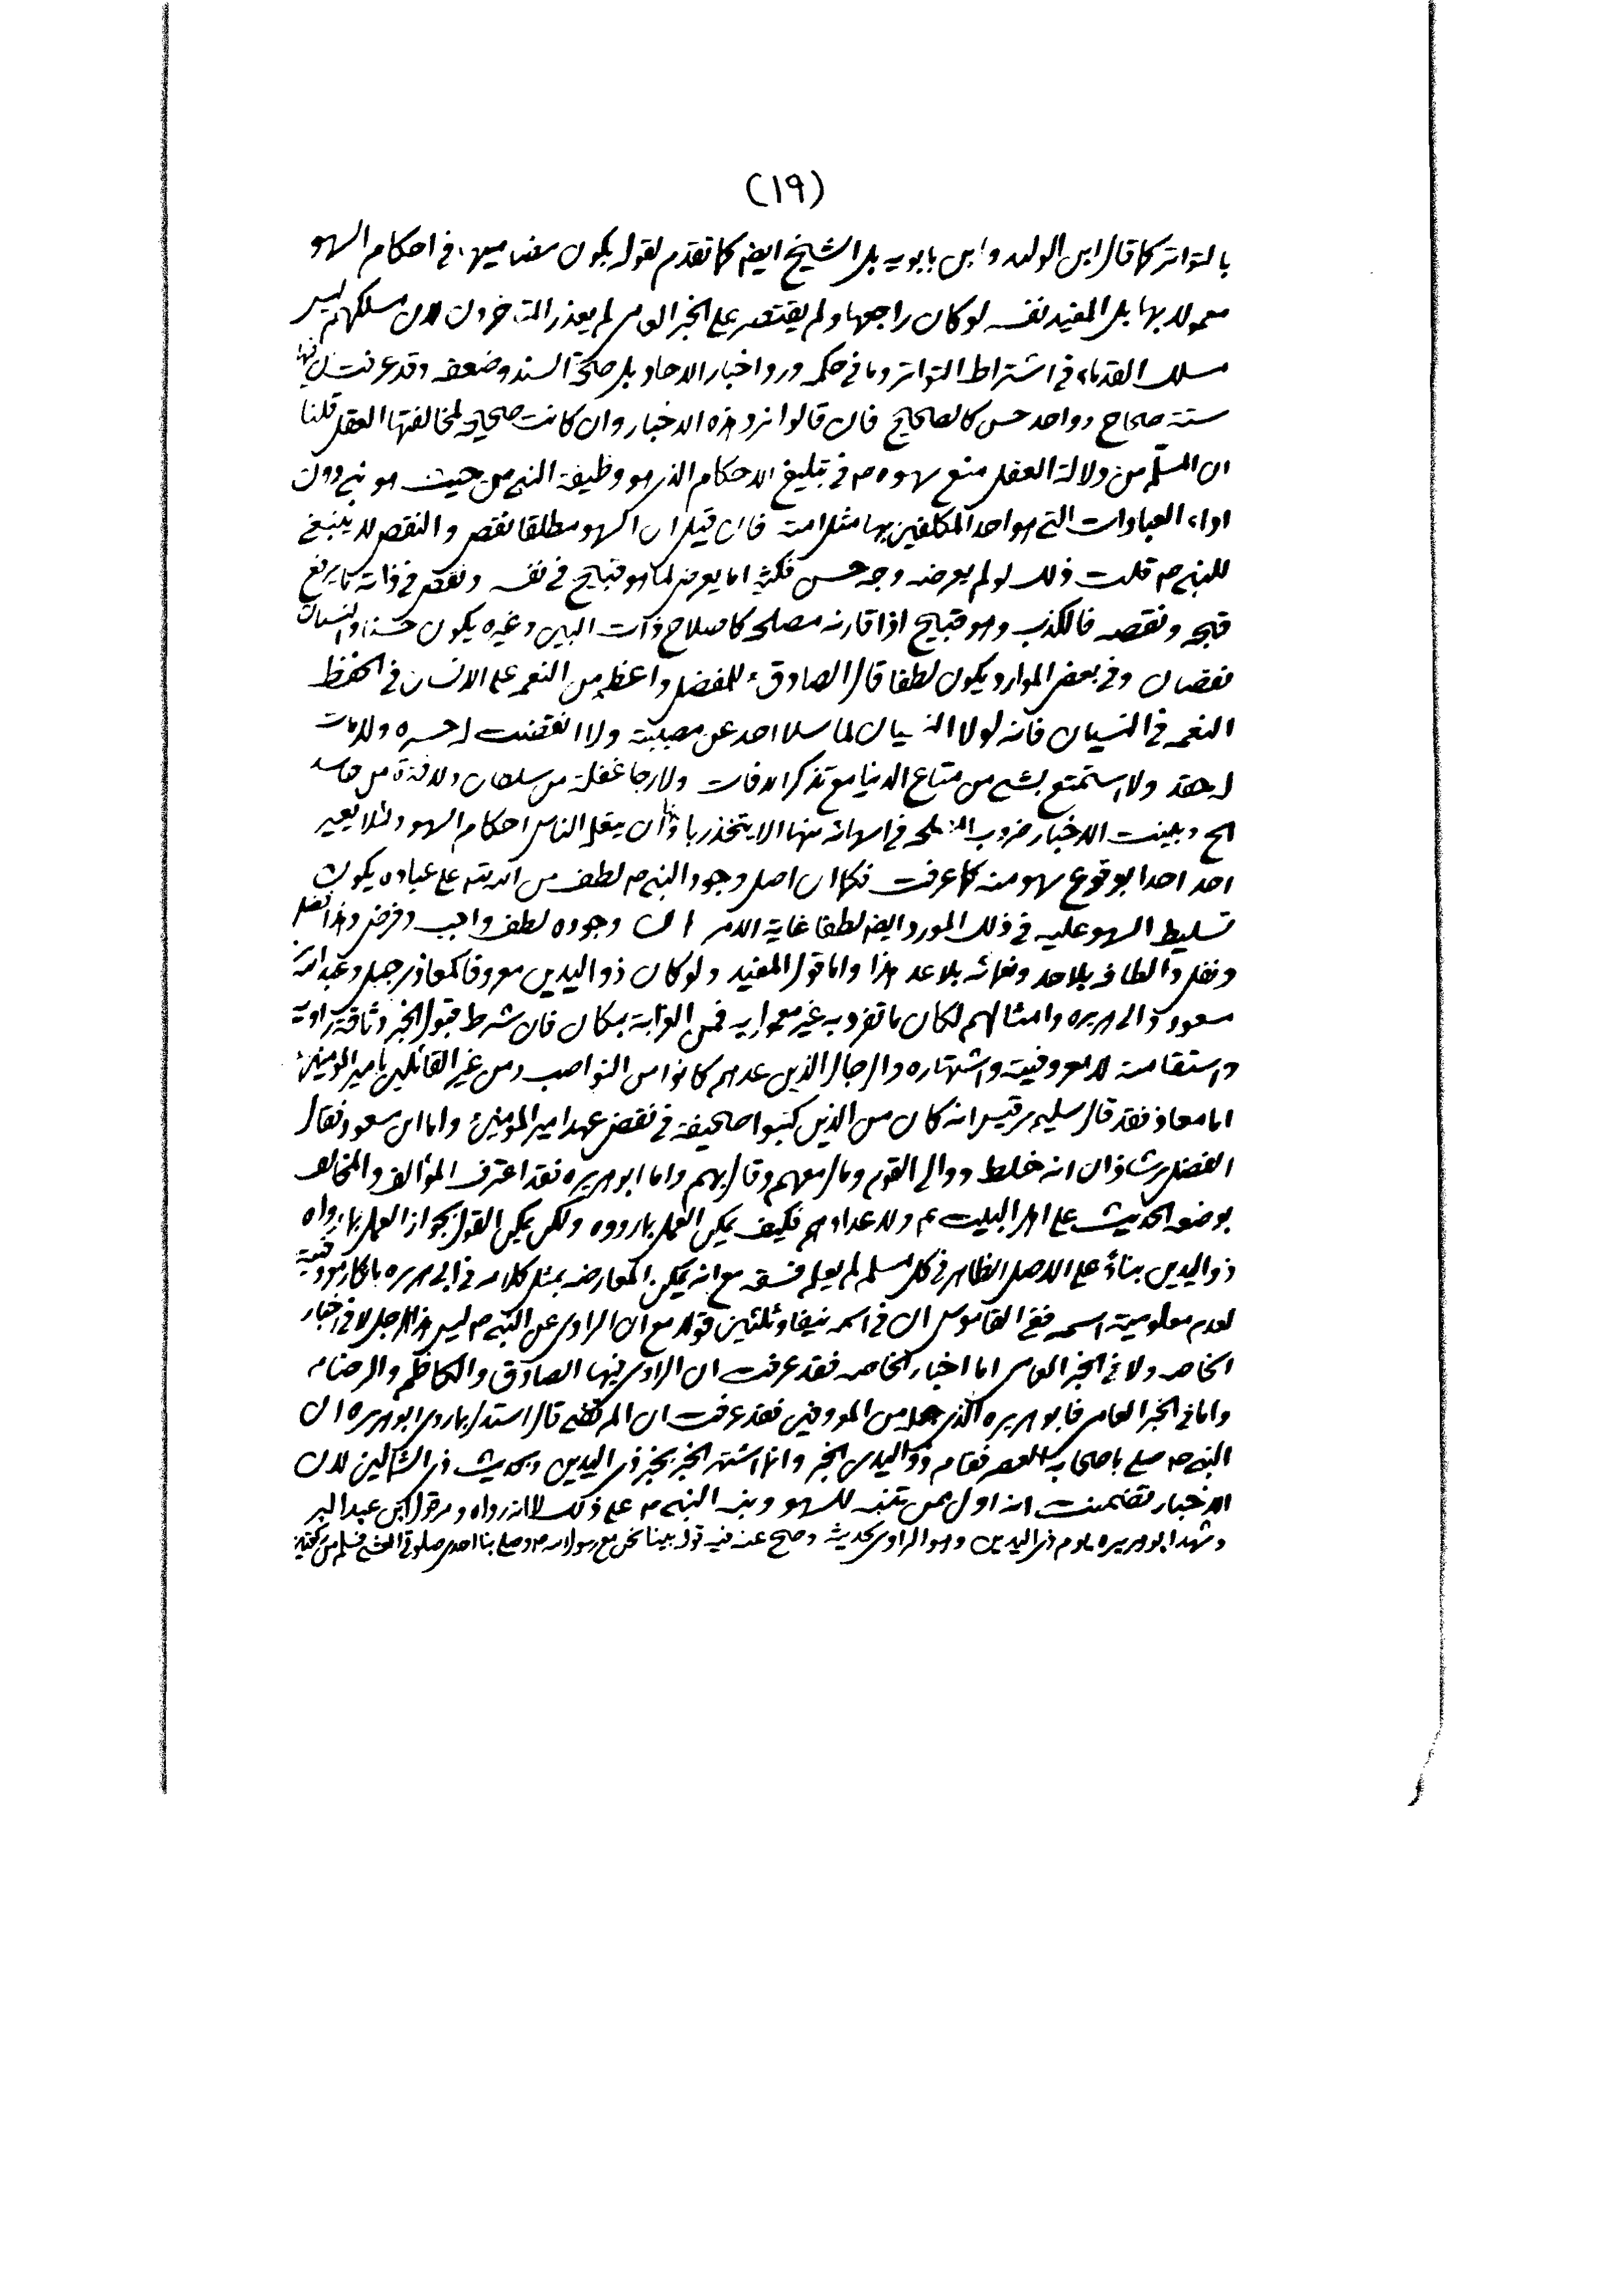 (١٩)
بالتواتر كما قال ابن الوليد وابن بابويه بل الشيخ ايضا كما تقدم لقوله بكون مضامينها في احكام السهو
معمولا بها بل المفيد نفسه لو كان راجعها ولم يقتصر على الخبر العامي لم يعذر المتاخرون لان مسلكهم ليس
مسلك القدماء في اشتراط التواتر وما في حكمه ورد اخبار الاحاد بل صحة السند وضعفه وقد عرفت ان فيها
ستة صحاح وواحد حسن كالصحيح فان قالوا نرد هذه الاخبار وان كانت صحيحة لمخالفتها العقل قلنا
ان المسلم من دلالة العقل منع سهوه ص في تبليغ الاحكام الذي هو وظيفة النبي من حيث هو نبي دون
اداء العبادات التي هو احد المكلفين بها مثل امته فان قيل ان السهو مطلقا نقص والنقص لا ينبغي
للنبي ص قلت ذلك لو لم يعرضه وجه حسن فكثيرا ما يعرض لما هو قبيح في نفسه ونقص في ذاته ما يرفع
قبحه ونقصه فالكذب وهو قبيح اذا قارنه مصلحة كاصلاح ذات البين وغيره يكون حسنا والنسيان
نقصان وفي بعض الموارد يكون لطفا قال الصادق ع للمفضل واعظم من النعمة على الانسان في الحفظ
النعمة في النسيان فانه لولا النسيان لما سلا احد عن مصيبته ولا انقضت له حسرة ولا مات
له حقد ولا استمتع بشيء من متاع الدنيا مع تذكر الافات ولا رجا غفلة من سلطان ولا فترة من حاسد
الخ وبينت الاخبار ضروب المصلحة في اسهائه منها الا يتخذ ربا وان يعلم الناس احكام السهو ولئلا يعير
احد احدا بوقوع سهو منه كما عرفت فكما ان اصل وجود النبي ص لطف من الله تعه على عباده يكون
تسليط السهو عليه في ذلك المورد ايضا لطفا غاية الامر ان وجوده لطف واجب وفرض وهذا فضل
ونفل والطافه بلا حد ونعمائه بلا عد هذا واما قول المفيد ولو كان ذو اليدين معروفا كمعاذ بن جبل وعبد الله بن
مسعود وابي هريرة وامثالهم لكان ما تفرد به غير معمول به فمن الغرابة بمكان فان شرط قبول الخبر وثاقة راويه
واستقامته لا معروفيته واشتهاره والرجال الذين عدهم كانوا من النواصب ومن غير القائلين بامير المؤمنين ع
اما معاذ فقد قال سليم بن قيس انه كان من الذين كتبوا صحيفة في نقض عهد امير المؤمنين ع واما ابن مسعود فقال
الفضل بن شاذان انه خلط ووالى القوم ومال معهم وقال بهم واما ابو هريرة فقد اعترف المؤالف والمخالف
بوضعه الحديث على اهل البيت ع ولاعدائهم فكيف يمكن العمل بما رووه ولكن يمكن القول بجواز العمل بما رواه
ذو اليدين بناء على الاصل الظاهر في كل مسلم لم يعلم فسقه مع انه يمكن المعارضة بمثل كلامه في ابي هريرة بانكار معروفيته
لعدم معلومية اسمه ففي القاموس ان في اسمه نيفا وثلثين قولا مع ان الراوي عن النبي ص ليس هذا الرجل لا في اخبار
الخاصة ولا في الخبر العامي اما اخبار الخاصة فقد عرفت ان الراوي فيها الصادق والكاظم والرضا ع
واما في الخبر العامي فابو هريرة الذي جعله من المعروفين فقد عرفت ان المرتضى قال استدل بما روى ابو هريرة ان
النبي ص صلى باصحابه العصر فقام ذو اليدين الخبر وانما اشتهر الخبر بخبر ذي اليدين وبحديث ذي الشمالين لان
الاخبار تضمنت انه اول من تنبه للسهو ونبه النبي ص على ذلك لا انه رواه ومر قول ابن عبد البر
وشهد ابو هريرة يوم ذي اليدين وهو الراوي لحديثه وصح عنه فيه قوله بينا نحن مع رسول الله ص وصلى بنا احدى صلوتي العشي فسلم من ركعتين